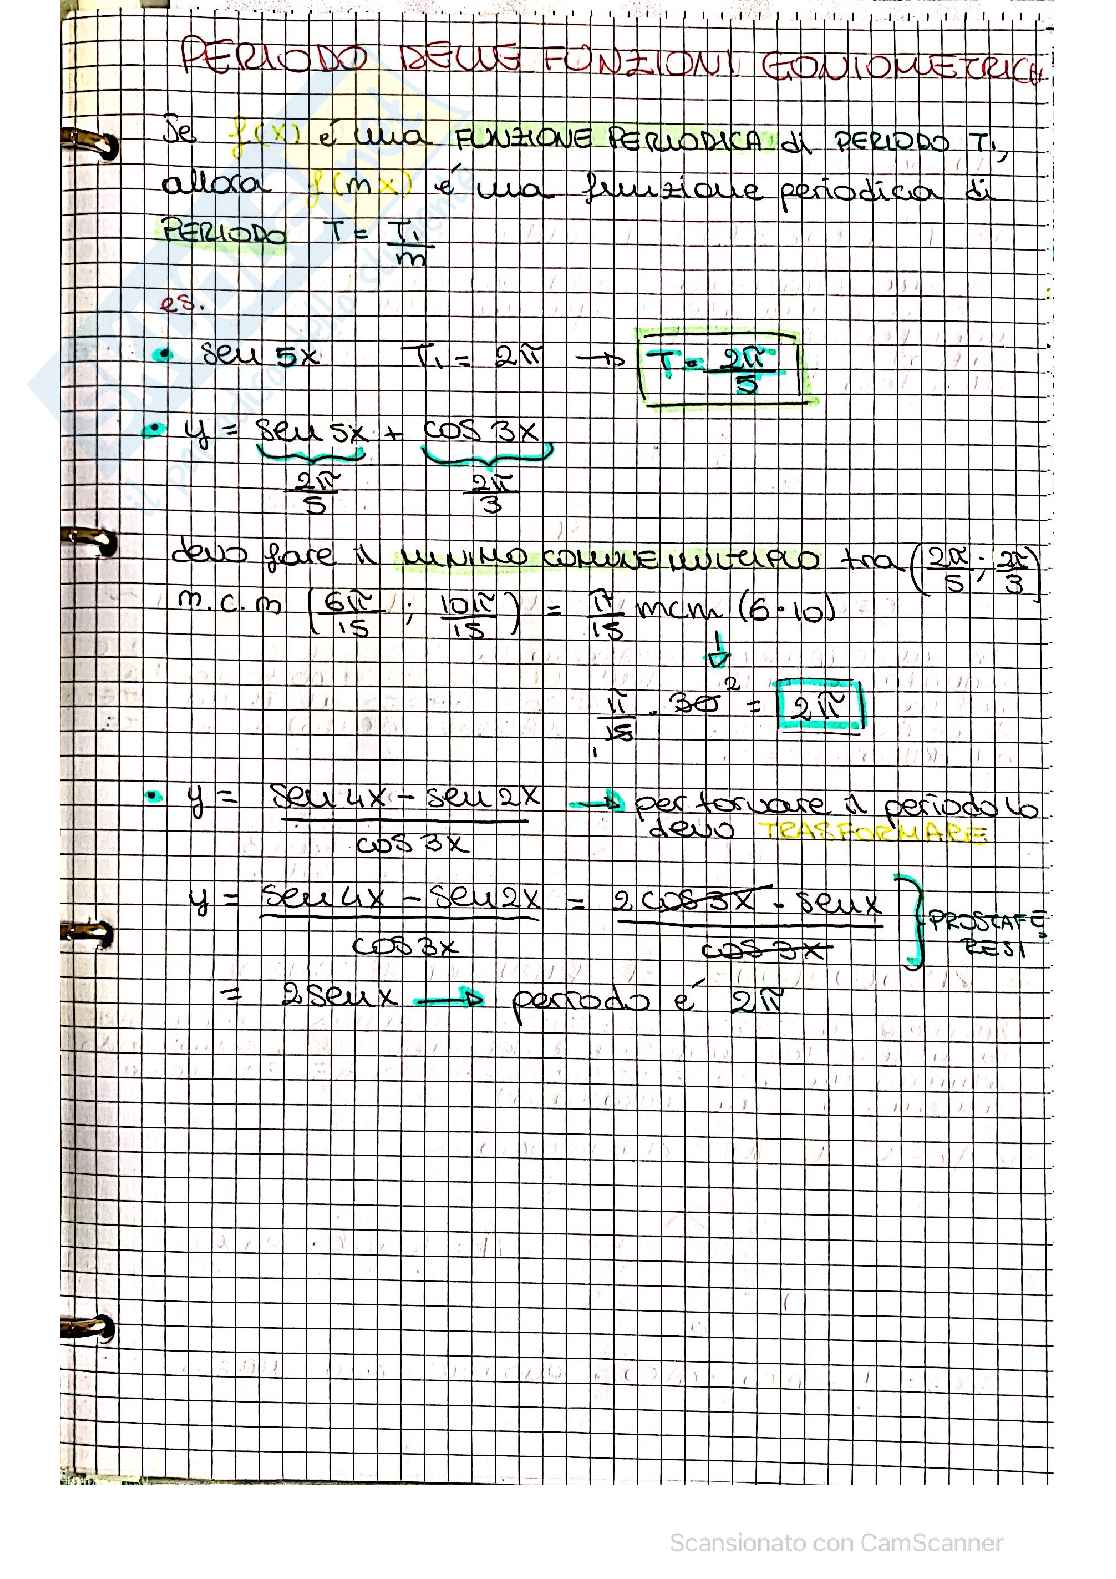 PERIODO DELLE FUNZIONI GONIOMETRICH
Se f(x) é una FUNZIONE PERIODICA di PERIODO T₁,
allora f(mx) é una funzione periodica di
PERIODO T = T₁/m
es.
• sen 5x T₁ = 2π → T = 2π/5
• y = sen 5x + cos 3x
2π/5 2π/3
devo fare il MINIMO COMUNE MULTIPLO tra (2π/5 ; 2π/3)
m.c.m (6π/15 ; 10π/15) = π/15 mcm (6·10)
π/15 · 30² = 2π
• y = (sen 4x − sen 2x)/cos 3x → per torvare il periodo lo
devo TRASFORMARE
y = (sen 4x − sen 2x)/cos 3x = (2 cos 3x · sen x)/cos 3x } PROSTAFE
RESI
= 2 sen x → periodo é 2π
Scansionato con CamScanner